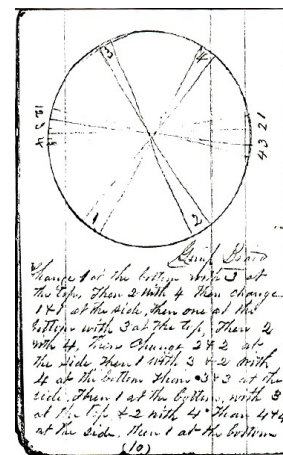 3 4
1 2 3 4
4 3 2 1
1 2
Quilt Board
Change 1 at the bottom with 3 at
the top, then 2 with 4 then change
1 & 1 at the side, then one at the
bottom with 3 at the top, then 2
with 4, then change 2 & 2 at
the side then 1 with 3 & 2 with
4 at the bottom then 3 & 3 at the
side, then 1 at the bottom, with 3
at the top & 2 with 4 then 4 & 4
at the side. then 1 at the bottom
(10)